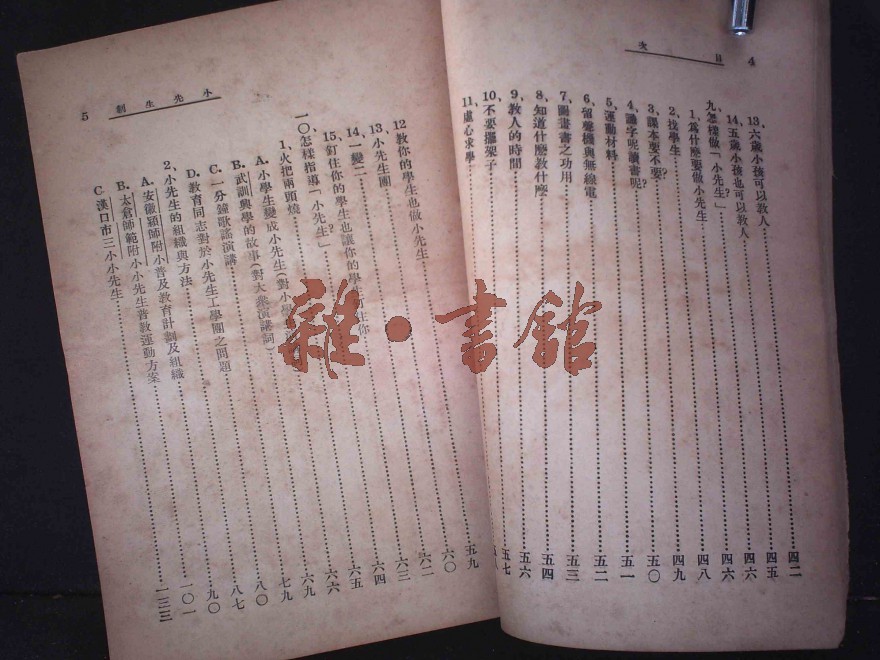 4 目次
13, 六歲小孩可以教人……四二
14, 五歲小孩也可以教人……四五
九, 怎樣做「小先生」?……四六
1, 爲什麼要做小先生……四六
2, 找學生……四八
3, 課本要不要?……四九
4, 識字呢讀書呢?……五〇
5, 運動材料……五一
6, 留聲機與無線電……五二
7, 圖畫書之功用……五三
8, 知道什麼教什麼……五四
9, 教人的時間……五六
10, 不要擺架子……五七
11, 虛心求學
小先生制 5
12 教你的學生也做小先生……五九
13, 小先生團……六〇
14, 一變二……六二
15, 釘住你的學生也讓你的學 釘住你……六三
一〇, 怎樣指導「小先生」?……六四
1, 火把兩頭燒……六五
A. 小學生變成小先生(對小學……六六
B. 武訓興學的故事(對大衆演講詞)……六九
C. 一分鐘歌謠演講……七九
D. 教育同志對於小先生工學團之問題……八〇
2, 小先生的組織與方法……八七
A. 安徽潁師附小普及教育計劃及組織……九〇
B. 太倉師範附小小先生普教運動方案……一〇一
C 漢口市三小小先生……一二三
雜·書館